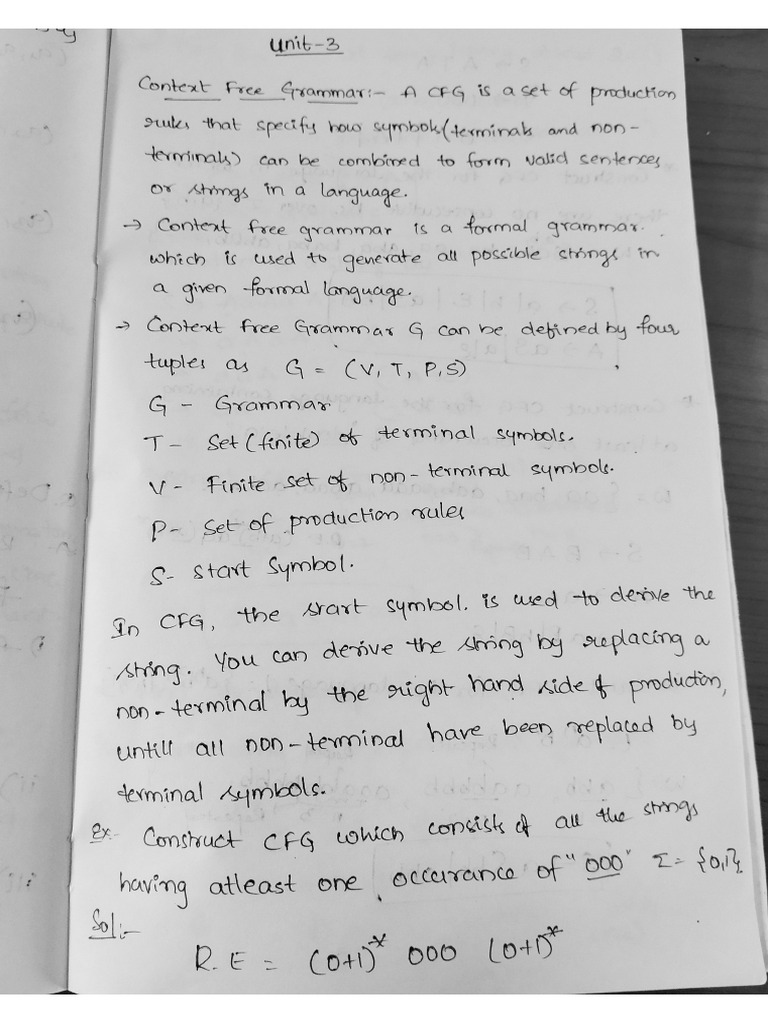 Unit-3
Context Free Grammar:- A CFG is a set of production
rules that specify how symbols (terminals and non-
terminals) can be combined to form valid sentences
or strings in a language.
→ Context free grammar is a formal grammar
which is used to generate all possible strings in
a given formal language.
→ Context free Grammar G can be defined by four
tuples as G = (V, T, P, S)
G - Grammar
T - Set (finite) of terminal symbols.
V - Finite set of non-terminal symbols.
P - Set of production rules
S - Start Symbol.
In CFG, the start symbol. is used to derive the
string. You can derive the string by replacing a
non-terminal by the right hand side of production,
untill all non-terminal have been replaced by
terminal symbols.
Ex:- Construct CFG which consists of all the strings
having atleast one occurance of "000" Σ = {0,1}.
Sol:-
R.E = (0+1)* 000 (0+1)*